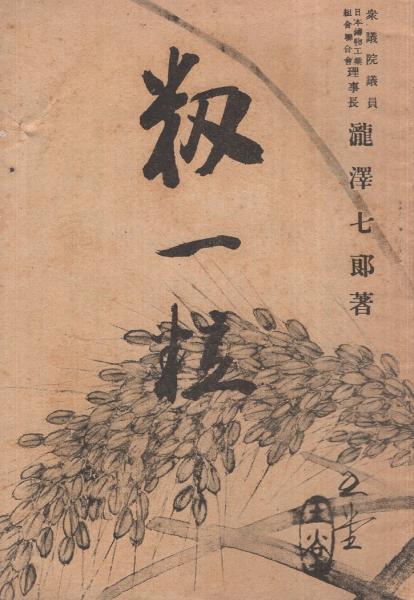 衆議院議員
日本鑄物工業
組合聯合會理事長
瀧澤七郎著
籾一粒